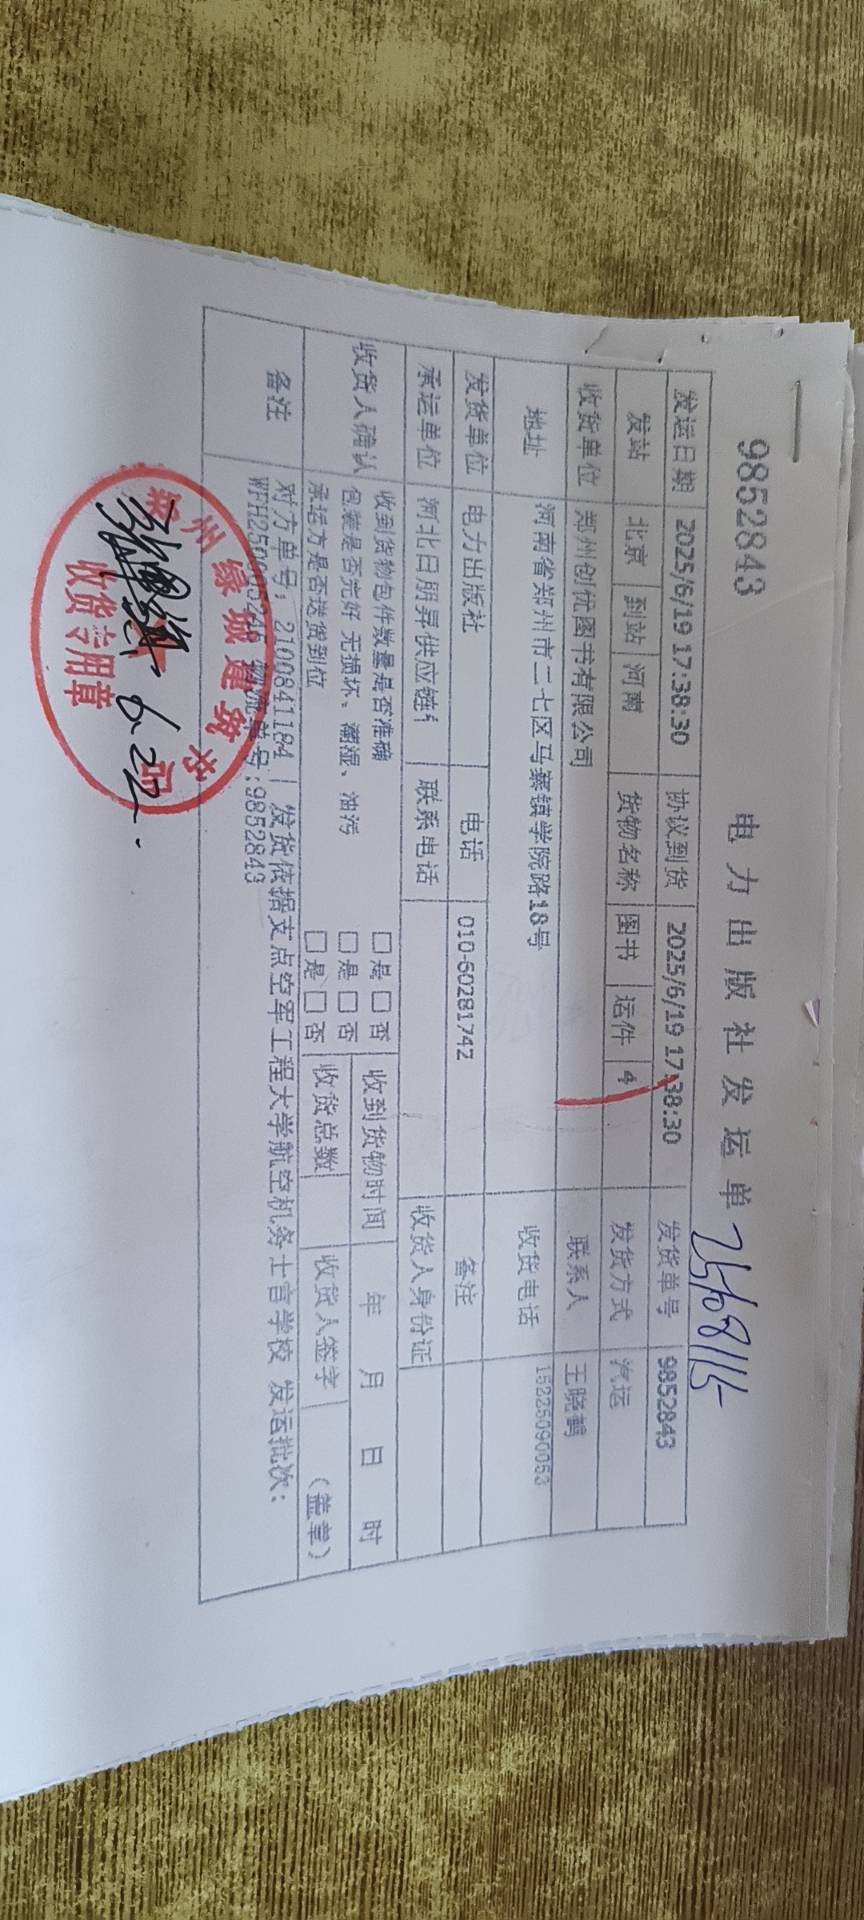 9852843
电力出版社发运单
25608115
发运日期 2025/6/19 17:38:30 协议到货 2025/6/19 17:38:30 发货单号 9852843
发站 北京 到站 河南 货物名称 图书 运件 4 发货方式 汽运
收货单位 郑州创优图书有限公司 联系人 王晓鹤
地址 河南省郑州市二七区马寨镇学院路18号 收货电话 15225090053
发货单位 电力出版社 电话 010-60281742 备注
承运单位 河北日朋昇供应链 联系电话 收货人身份证
收货人确认 收到货物包件数量是否准确 □是□否 收到货物时间 年 月 日 时
包装是否完好 无损坏、潮湿、油污 □是□否
承运方是否送货到位 □是□否 收货总数 收货人签字 (盖章)
备注 对方单号：2100841184 | 发货依据支点空军工程大学航空机务士官学校 发运批次：
物流单号:9852843
郑州绿城建筑书
收货专用章
6.22.